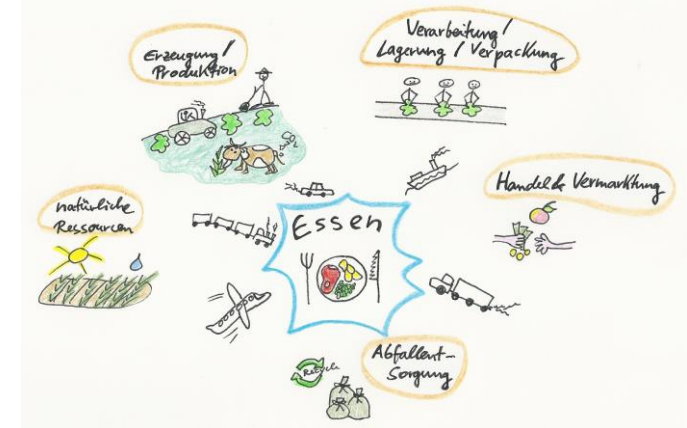 Erzeugung/
Produktion
Verarbeitung/
Lagerung / Verpackung
Handel & Vermarktung
natürliche
Ressourcen
Essen
Abfallent-
Sorgung
Recycle